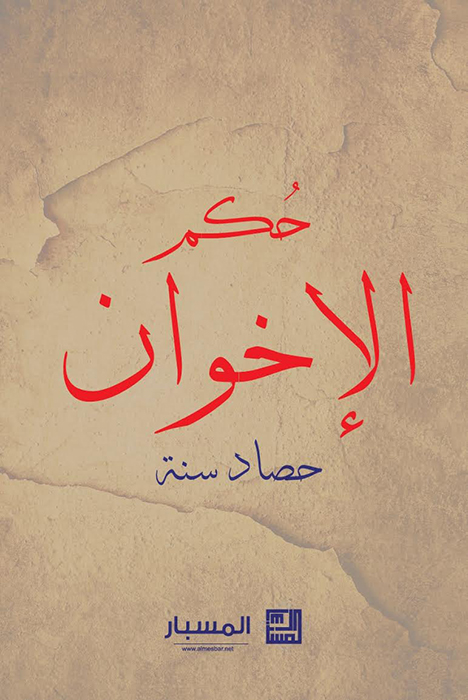 حُكم
الإخوان
حصاد سنة
المسبار
www.almesbar.net